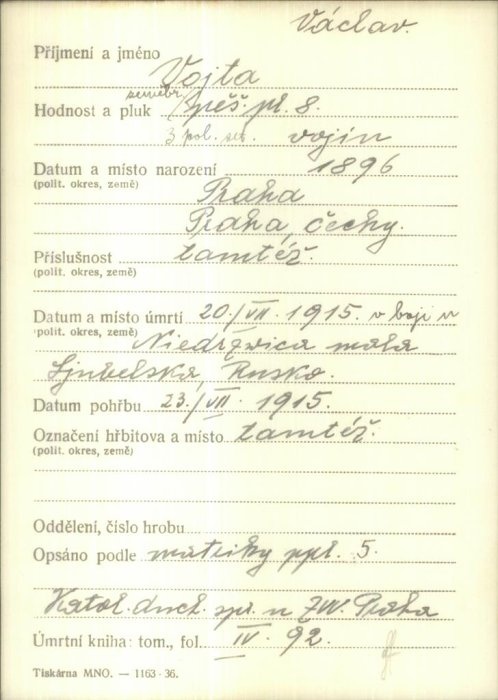 Václav.
Příjmení a jméno
Vojta
zeměbr.
Hodnost a pluk pěš. pl. 8.
3 pol. vojín
Datum a místo narození 1896
(polit. okres, země) Praha
Praha, Čechy.
Příslušnost tamtéž.
(polit. okres, země)
Datum a místo úmrtí 20./VII. 1915. v boji u
(polit. okres, země) Niedrzwica mala
Ljubelska, Rusko.
Datum pohřbu 23./VII. 1915.
Označení hřbitova a místo tamtéž.
(polit. okres, země)
Oddělení, číslo hrobu
Opsáno podle matriky ppl. 5.
Katol. duch. spr. u ZVV. Praha
Úmrtní kniha: tom., fol. IV. 92.
Tiskárna MNO. — 1163-36.